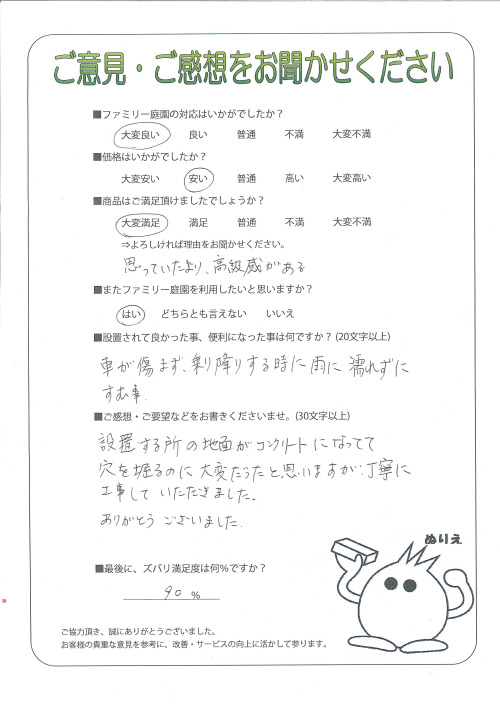 ご意見・ご感想をお聞かせください
■ファミリー庭園の対応はいかがでしたか？
大変良い 良い 普通 不満 大変不満
■価格はいかがでしたか？
大変安い 安い 普通 高い 大変高い
■商品はご満足頂けましたでしょうか？
大変満足 満足 普通 不満 大変不満
⇒よろしければ理由をお聞かせください。
思っていたより、高級感がある
■またファミリー庭園を利用したいと思いますか？
はい どちらとも言えない いいえ
■設置されて良かった事、便利になった事は何ですか？(20文字以上)
車が傷まず、乗り降りする時に雨に濡れずに
すむ事.
■ご感想・ご要望などをお書きくださいませ。(30文字以上)
設置する所の地面がコンクリートになってて
穴を堀るのに大変だったと思いますが丁寧に
工事していただきました。
ありがとうございました.
ぬりえ
■最後に、ズバリ満足度は何％ですか？
90 %
ご協力頂き、誠にありがとうございました。
お客様の貴重な意見を参考に、改善・サービスの向上に活かして参ります。